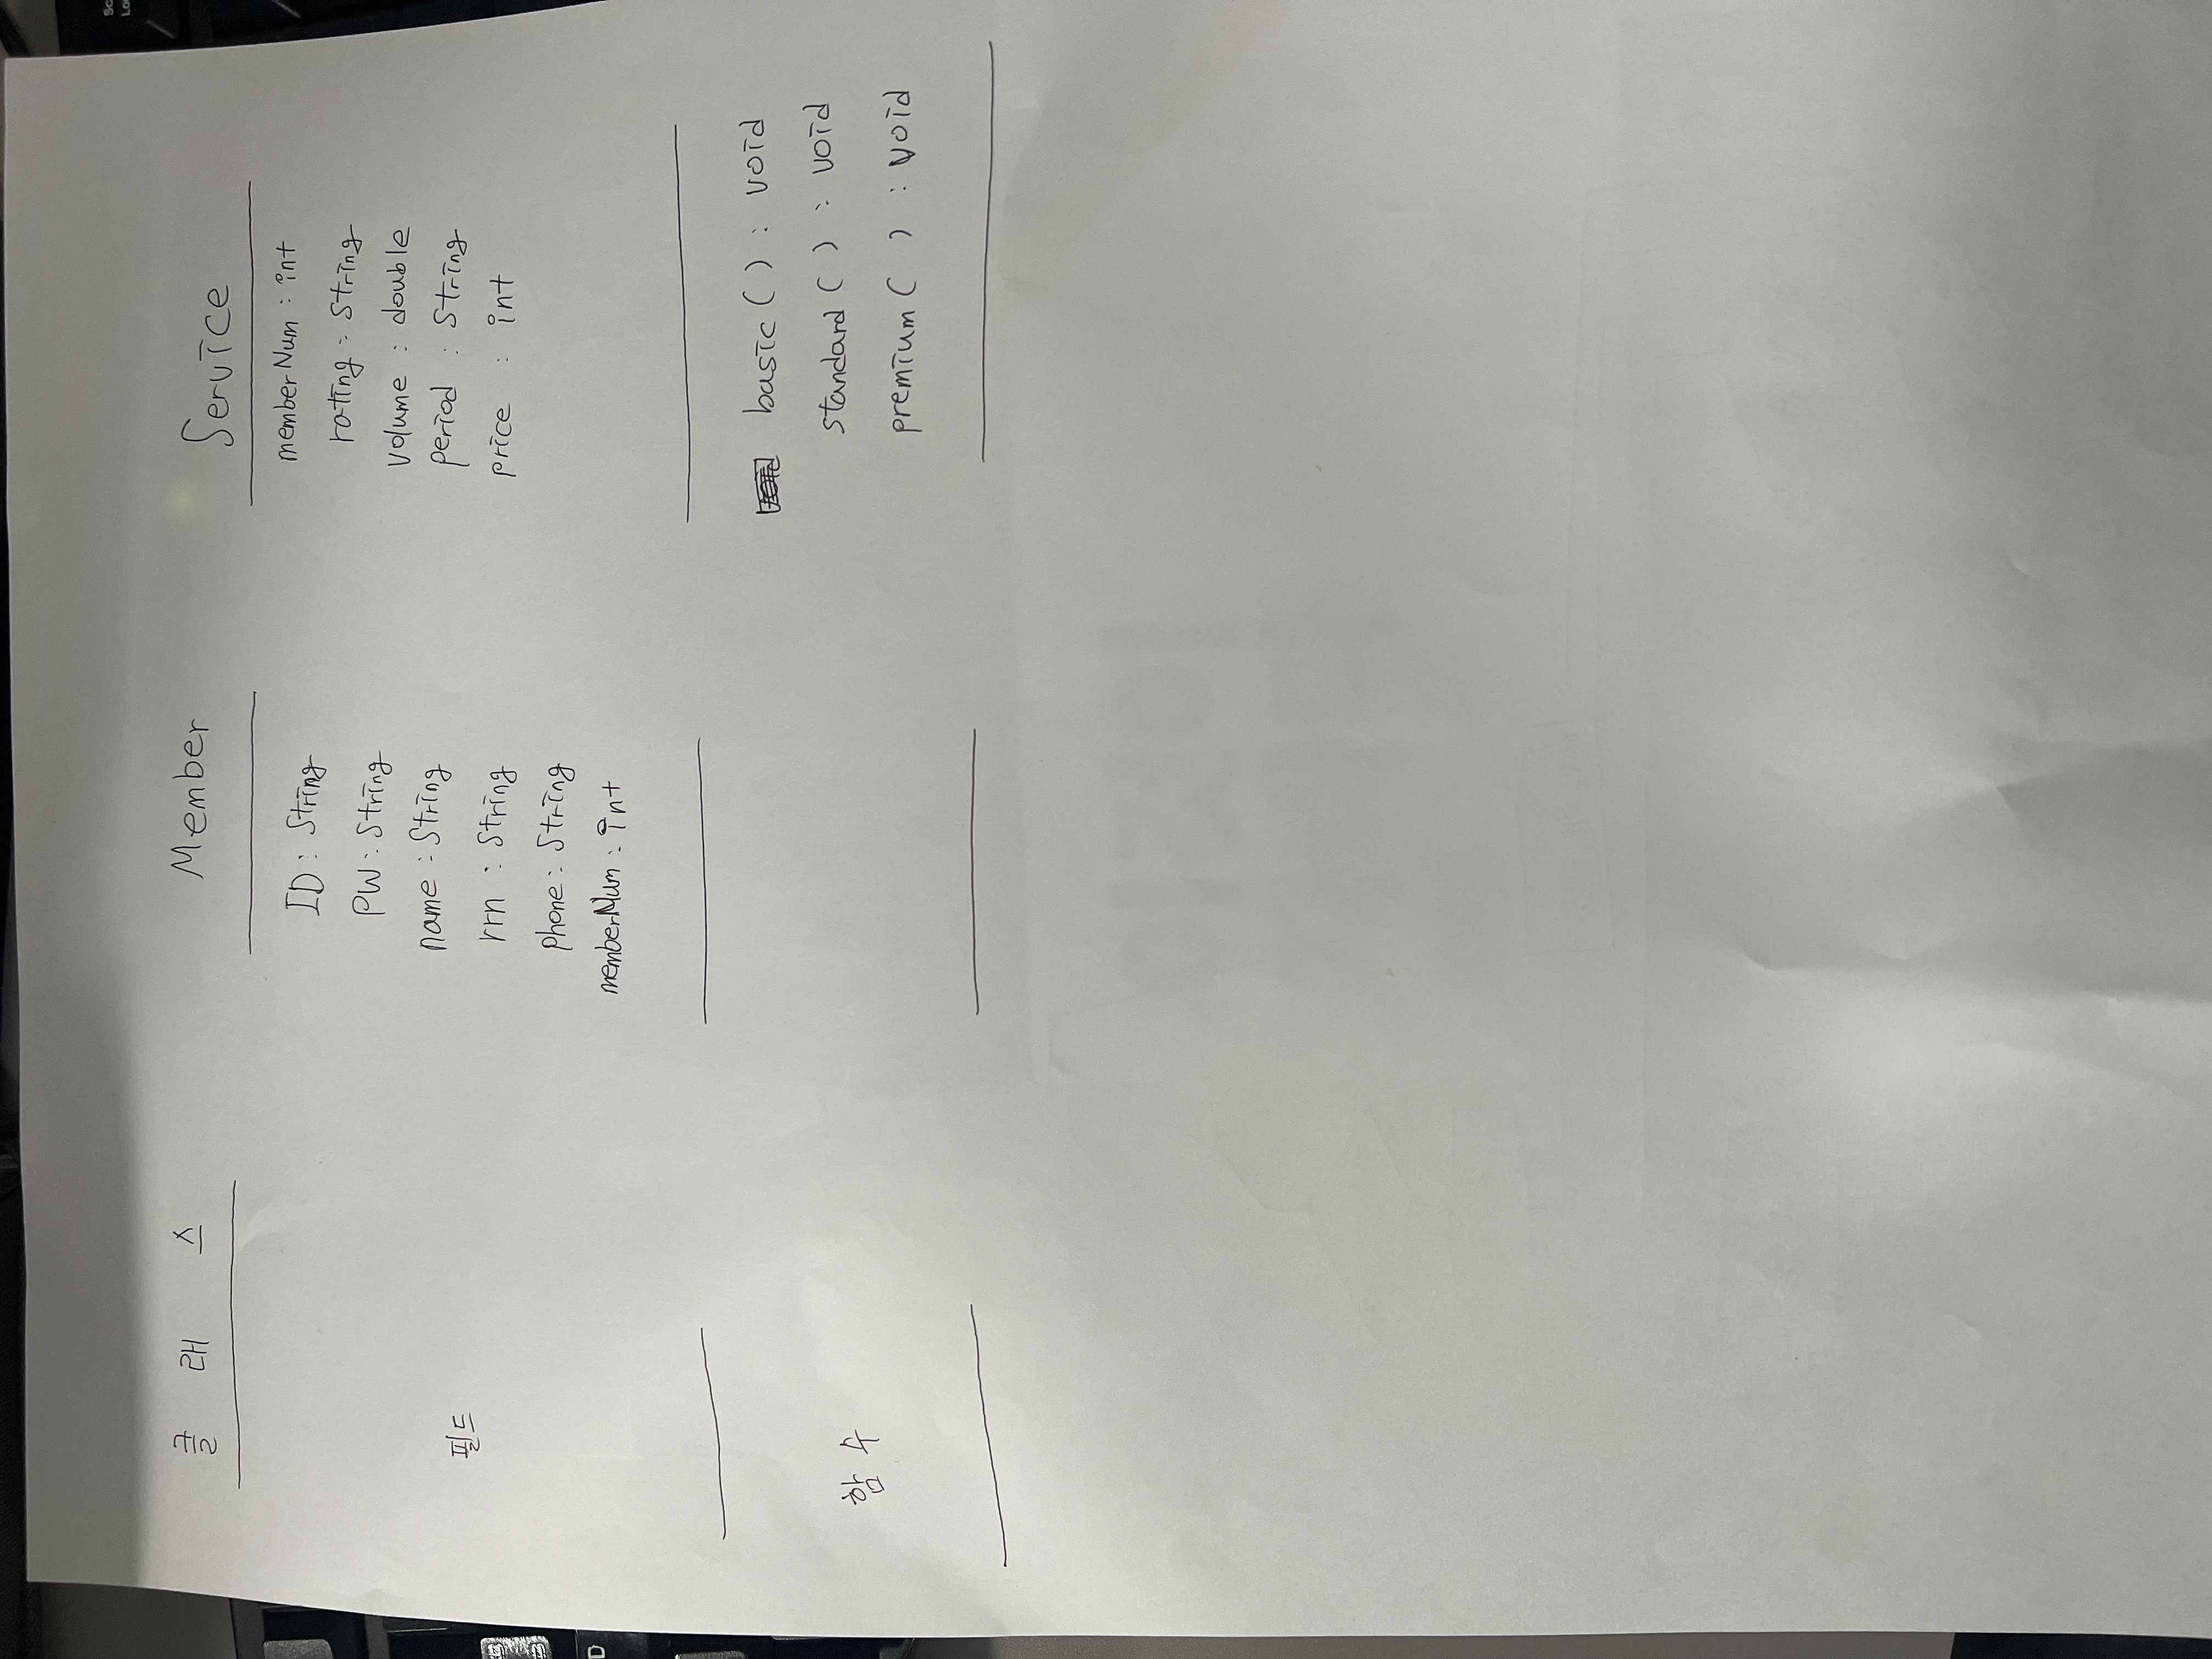 클래스
Member
Service
필드
ID : String
PW : String
name : String
rrn : String
phone : String
memberNum : int
memberNum : int
rating : String
volume : double
period : String
price : int
함수
basic ( ) : void
standard ( ) : void
premium ( ) : void
D